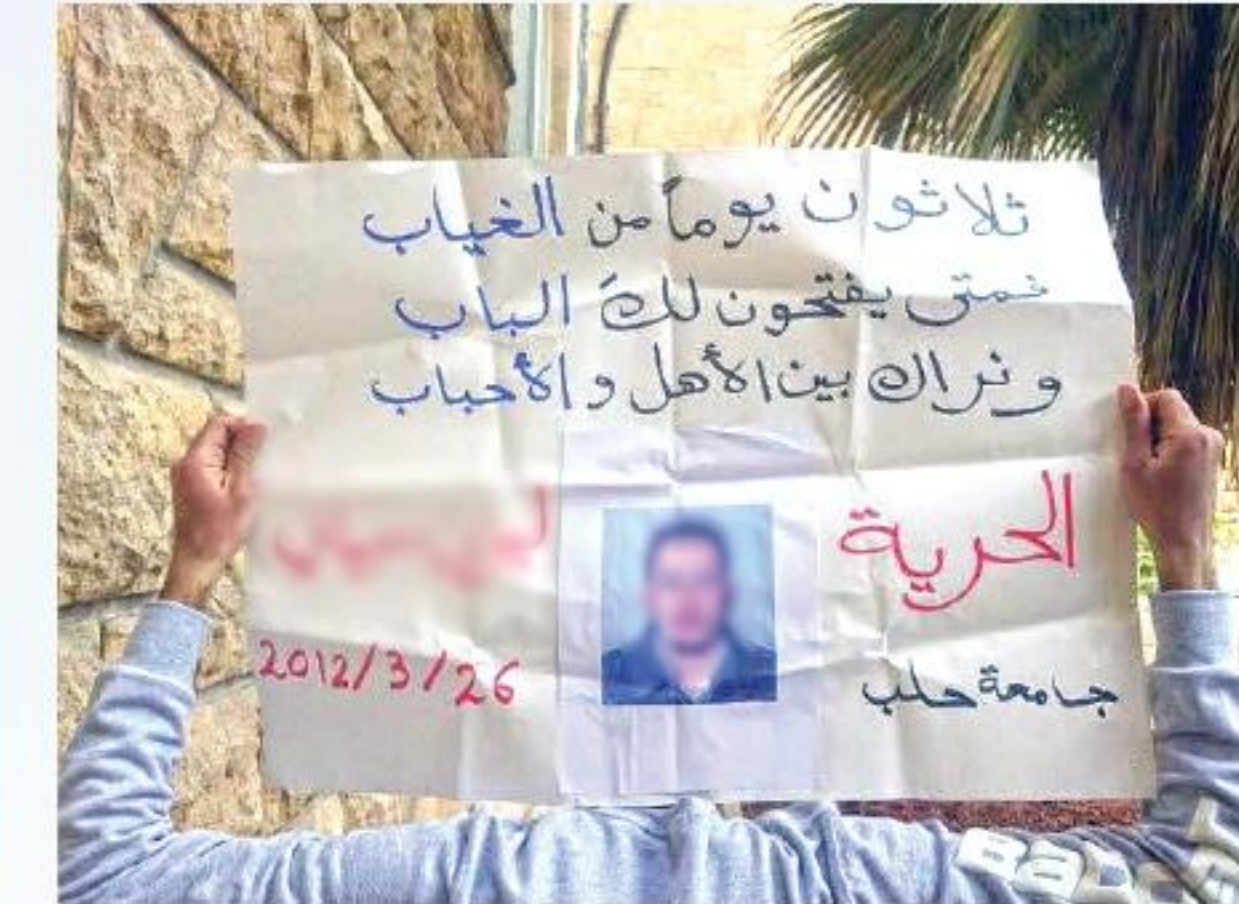 ثلاثون يوماً من الغياب
فمتى يفتحون لكَ الباب
و نراك بين الأهل و الأحباب
الحرية
جامعة حلب
2012/3/26